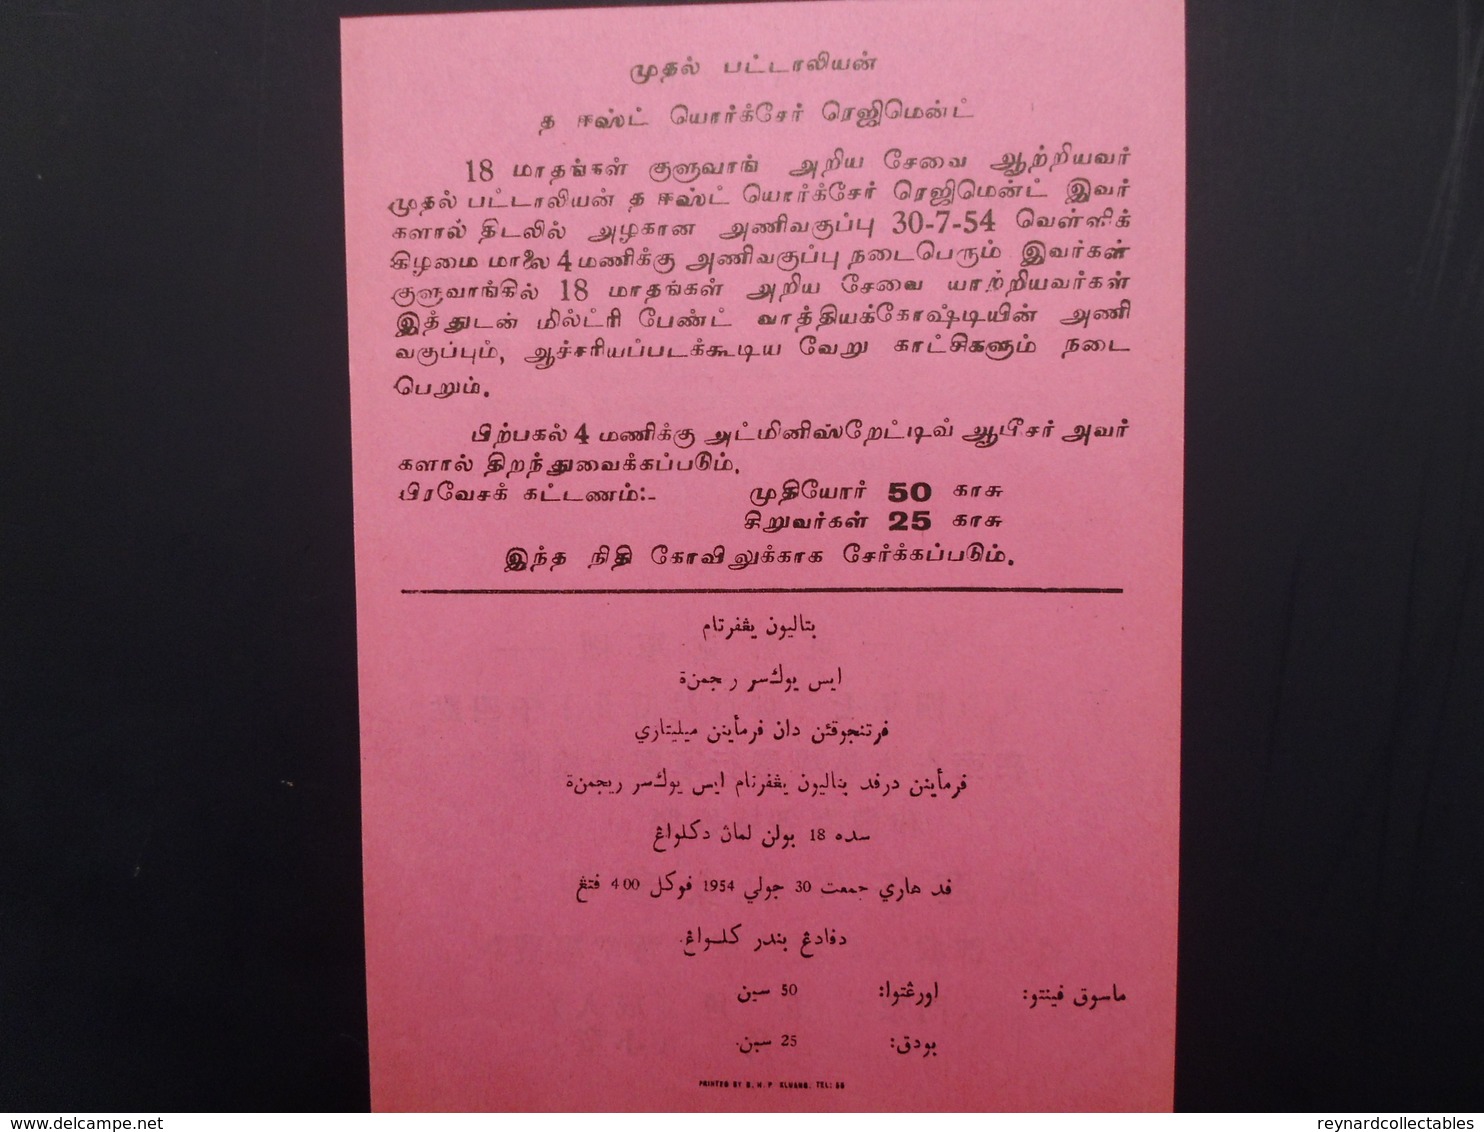 முதல் பட்டாலியன்
த ஈஸ்ட் யொர்க்சேர் ரெஜிமென்ட்
18 மாதங்கள் குளுவாங் அறிய சேவை ஆற்றியவர்
முதல் பட்டாலியன் த ஈஸ்ட் யொர்க்சேர் ரெஜிமென்ட் இவர்
களால் திடலில் அழகான அணிவகுப்பு 30-7-54 வெள்ளிக்
கிழமை மாலை 4 மணிக்கு அணிவகுப்பு நடைபெரும் இவர்கள்
குளுவாங்கில் 18 மாதங்கள் அறிய சேவை யாற்றியவர்கள்
இத்துடன் மில்ட்ரி பேண்ட் வாத்தியக்கோஷ்டியின் அணி
வகுப்பும், ஆச்சரியப்படக்கூடிய வேறு காட்சிகளும் நடை
பெறும்.
பிற்பகல் 4 மணிக்கு அட்மினிஸ்றேட்டிவ் ஆபீசர் அவர்
களால் திறந்துவைக்கப்படும்.
பிரவேசக் கட்டணம்:- முதியோர் 50 காசு
சிறுவர்கள் 25 காசு
இந்த நிதி கோவிலுக்காக சேர்க்கப்படும்.
بتاليون يڠفرتام
ايس يوركسر رجمنة
فرتنجوقئن دان فرمأينن ميليتاري
فرمأينن درفد بتاليون يڠفرتام ايس يوركسر ريجمنة
سده 18 بولن لمان دكلواڠ
فد هاري جمعت 30 جولي 1954 فوكل 400 فتڠ
دفادڠ بندر كلواڠ.
ماسوق فينتو: اورڠتوا: 50 سين
بودق: 25 سين.
PRINTED BY S. H. P KLUANG. TEL: 56
reynardcollectables
delcampe.net